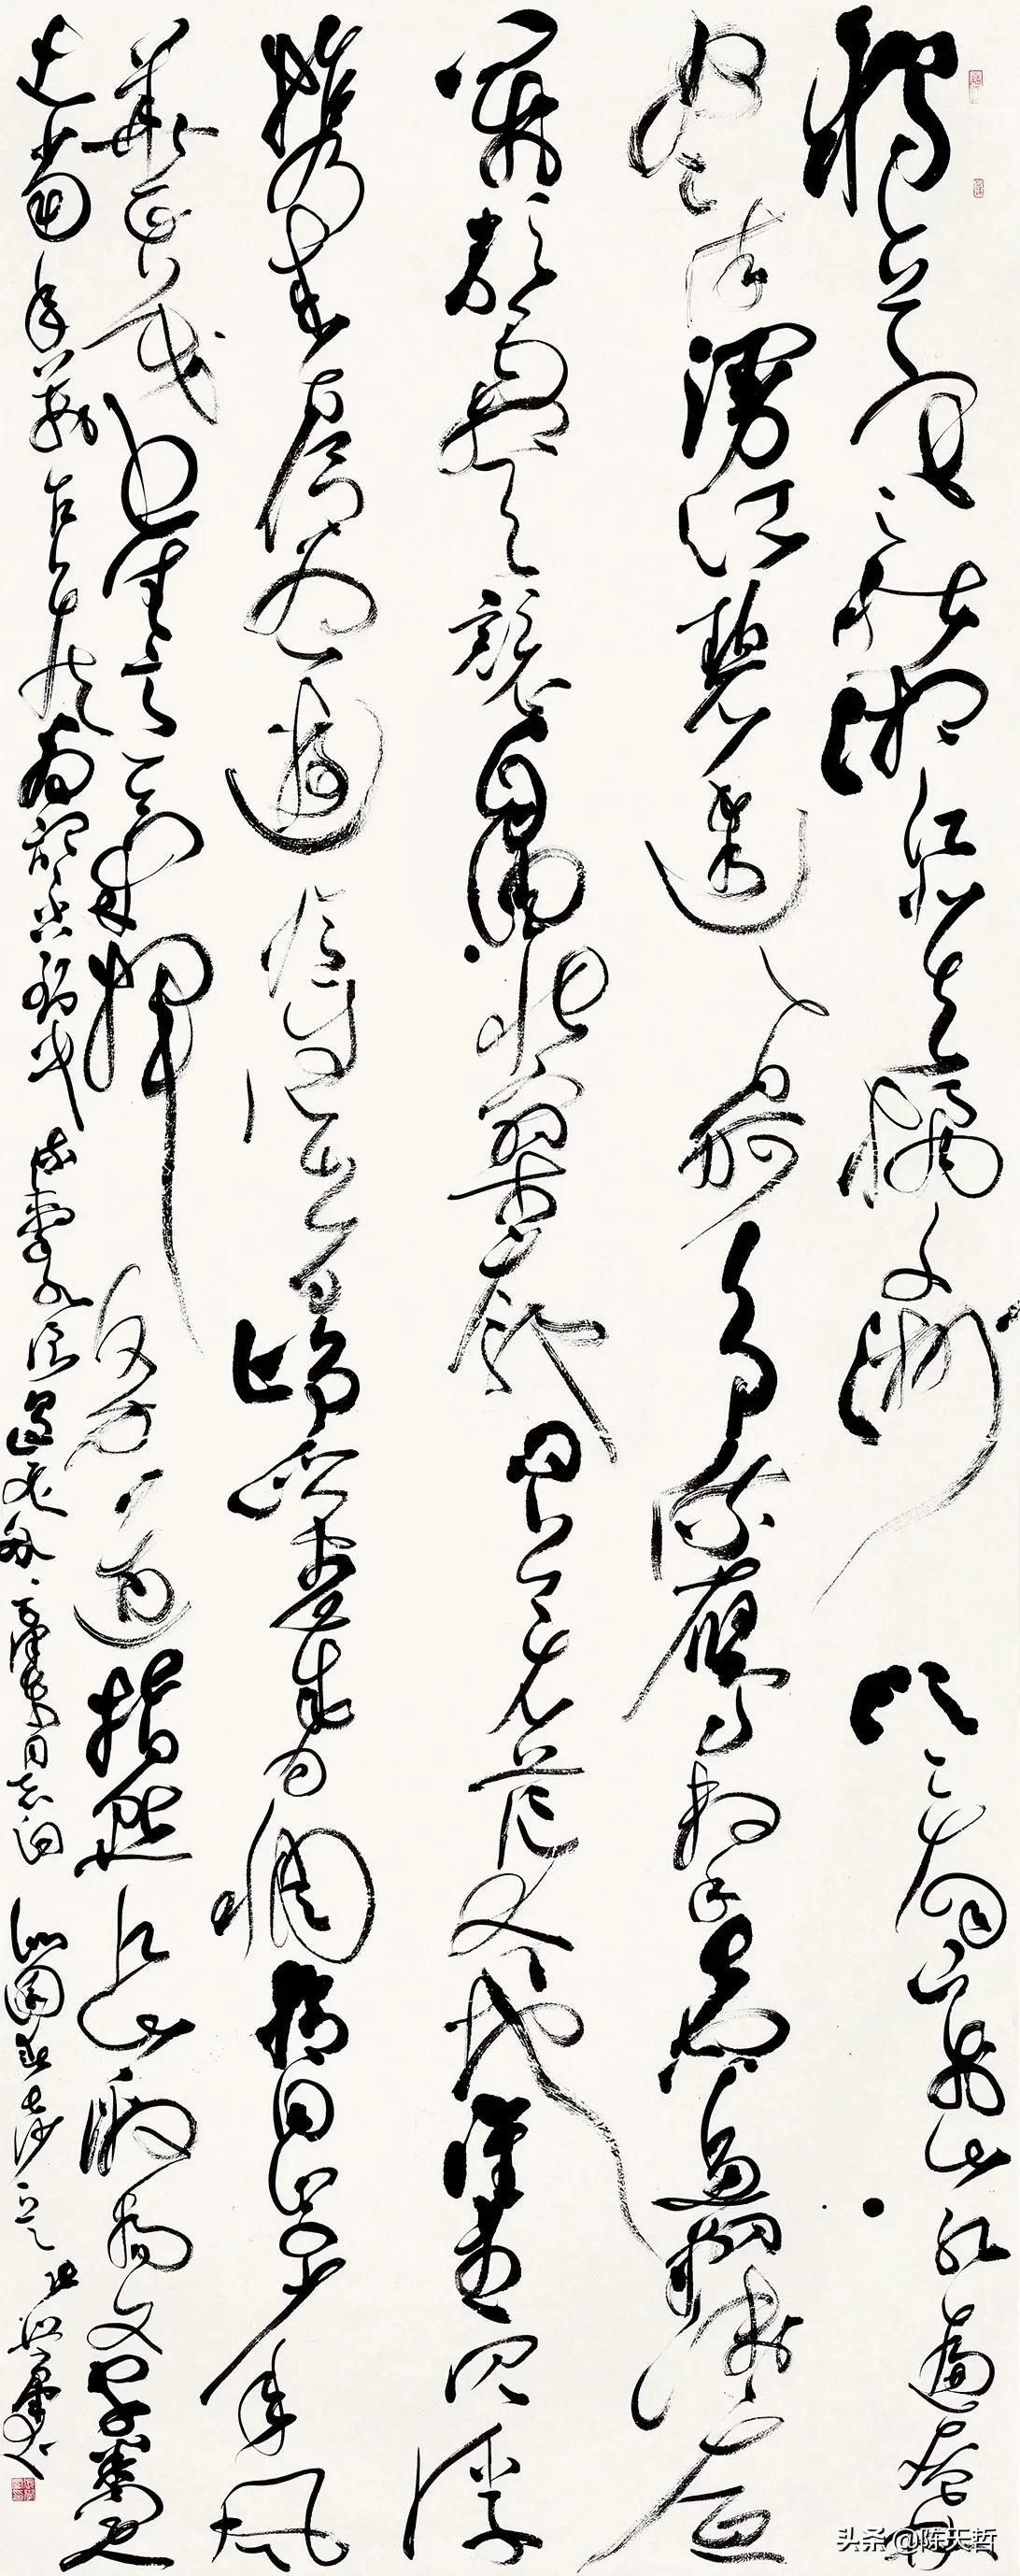 独立寒秋湘江北去橘子洲头看万山红遍层林
尽染漫江碧透百舸争流鹰击长空鱼翔浅底
万类霜天竞自由怅寥廓问苍茫大地谁主沉浮
携来百侣曾游忆往昔峥嵘岁月稠恰同学少年风
华正茂书生意气挥斥方遒指点江山激扬文字粪土
当年万户侯曾记否到中流击水浪遏飞舟毛泽东同志词沁园春长沙
头条 @陈天哲